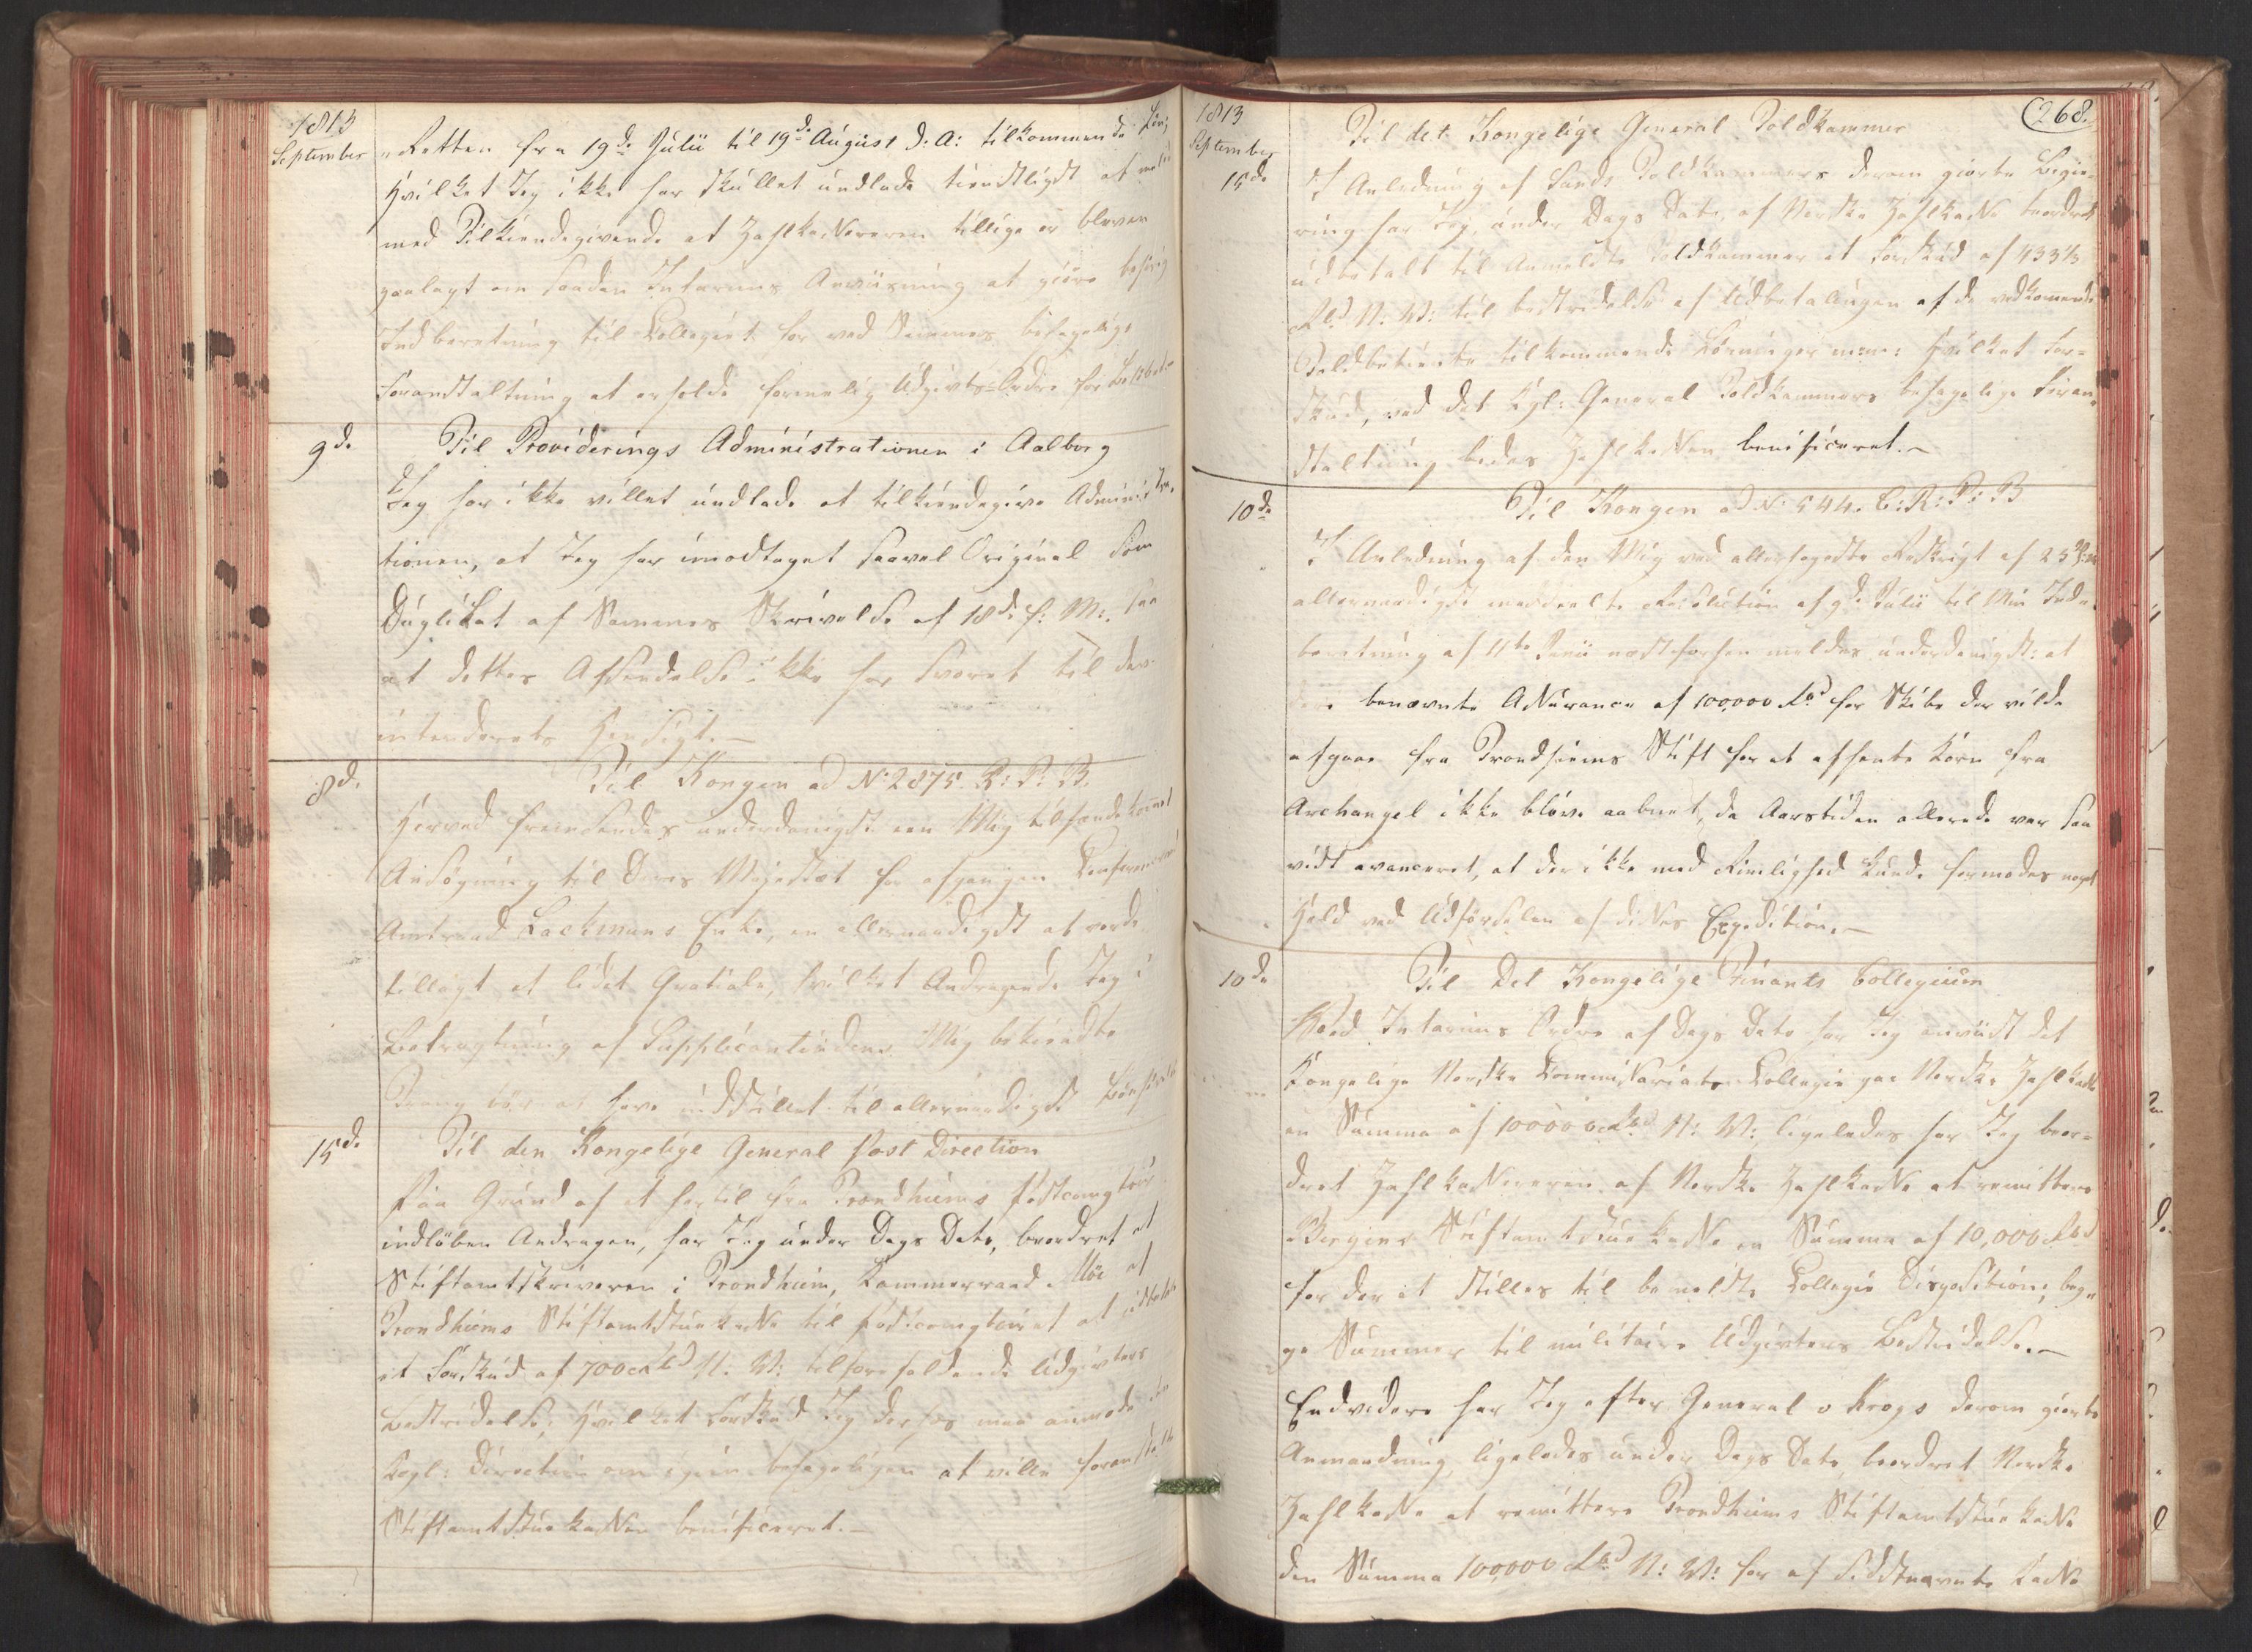 1813
September
Retten fra 19de Julii til 19de August d: A: tilkommende
hvilket Jeg ikke har skullet undlade tienstligst at
med Tilkiendegivende at Zahlkasereren tillige er bleven
paalagt om saadan Interims Anviisning at giøre behørig
Indberetning til Collegiet for ved Sammes behagelige
Foranstaltning at erholde formelig Udgivts-Ordre for Beløbet
9de
Til Providerings Administrationen i Aalborg
Jeg har ikke villet undlade at tilkiendegive Administra-
tionen, at Jeg har imodtaget saavel Original som
Duplikat af Sammes Skrivelse af 18de f: M:, saa
at dettes Afsendelse ikke har svaret til den
intenderete Hensigt.-
8d.
Til Kongen ad No 2875. R: P: B.
Herved fremsendes underdanigst en Mig tilhændekommet
Ansøgning til Deres Majestæt fra afgangen
Amtmand Lackmans Enke, om allernaadigst at vorde
tillagt et lidet Gratiale, hvilket Andragende Jeg i
Betragtning af Supplicantindens Mig bekiendte
Trang bør at have indstillet til allernaadigst Bønhørelse
15d.
Til den Kongelige General Post Direction
Paa Grund af et hertil fra Trondhiems Postcomptoir
indløben Andragen, har Jeg under Dags Dato, beordret at
Stiftamtskriveren i Trondhiem, Kammerraad Møe af
Trondhiems Stiftamtstuekasse til Postcomptoiret at udbetale
et Forskud af 700 Rbd N: W: til foresaldende Udgivters
Bestridelse; hvilket Forskud Jeg derhos maa anmode den
Kongl: Direction om igien behageligen at ville foranstalte
Stiftamtstuekassen beneficeret.-
1813
September
15de
268.
Til det Kongelige General Toldkammer
I Anledning af Lands Toldkammers derom giorte Begiæ-
ring har Jeg, under Dags Dato, af Norske Zahlkasse beordret
udbetalt til Anmeldte Toldkammer et Forskud af 4331/3
Rbd N: W: til Bestridelse af Udbetalingen af de vedkommende
Toldbetiente tilkommende Lønninger m:m: hvilket For-
skud, ved det Kgl: General Toldkammers behagelige Foran-
staltning bedes Zahlkassen beneficeret.-
10de
Til Kongen ad No 544. C: R: P: B
I Anledning af den Mig ved allerhøiestte Reskript af 25de
allernaadigst meddeelte Resolution af 9de Julii til Min Inde-
beretning af 11te Junii næstforhen meldes underdanigst: at
den benævnte Assurance af 100,000 Rbd for Skibe der vilde
afgaae fra Trondhiems Stift for at afhente Korn fra
Archangel ikke bleve aabnet, da Aarstiden allerede var saa
vidt avanceret, at der ikke med Rimelighed kunde formodes noget
Held ved Udførselen af disses Expedition.-
10de
Til Det Kongelige Finants Collegium
Ved Interims Ordre af Dags Dato har Jeg anviist det
Kongelige Norske Commissariats-Collegie paa Norske Zahlkasse
en Summa af 100000 Rbd N: W: ligeledes har Jeg beor-
dret Zahlkassereren af Norske Zahlkasse at remittere
Bergens Stiftamtstuekasse en Summa af 10,000 Rbd
for der at stilles til bemeldte Collegie Disposition; beg-
ge Summer til militaire Udgivters Bestridelse.-
Endvidere har Jeg efter General v Krogs derom giorte
Anmodning, ligeledes under Dags Dato, beordret Norske
Zahlkasse at remittere Trondhiems Stiftamtstuekasse
den Summa 100,000 Rbd N: W: for af sidstnævnte Kasse